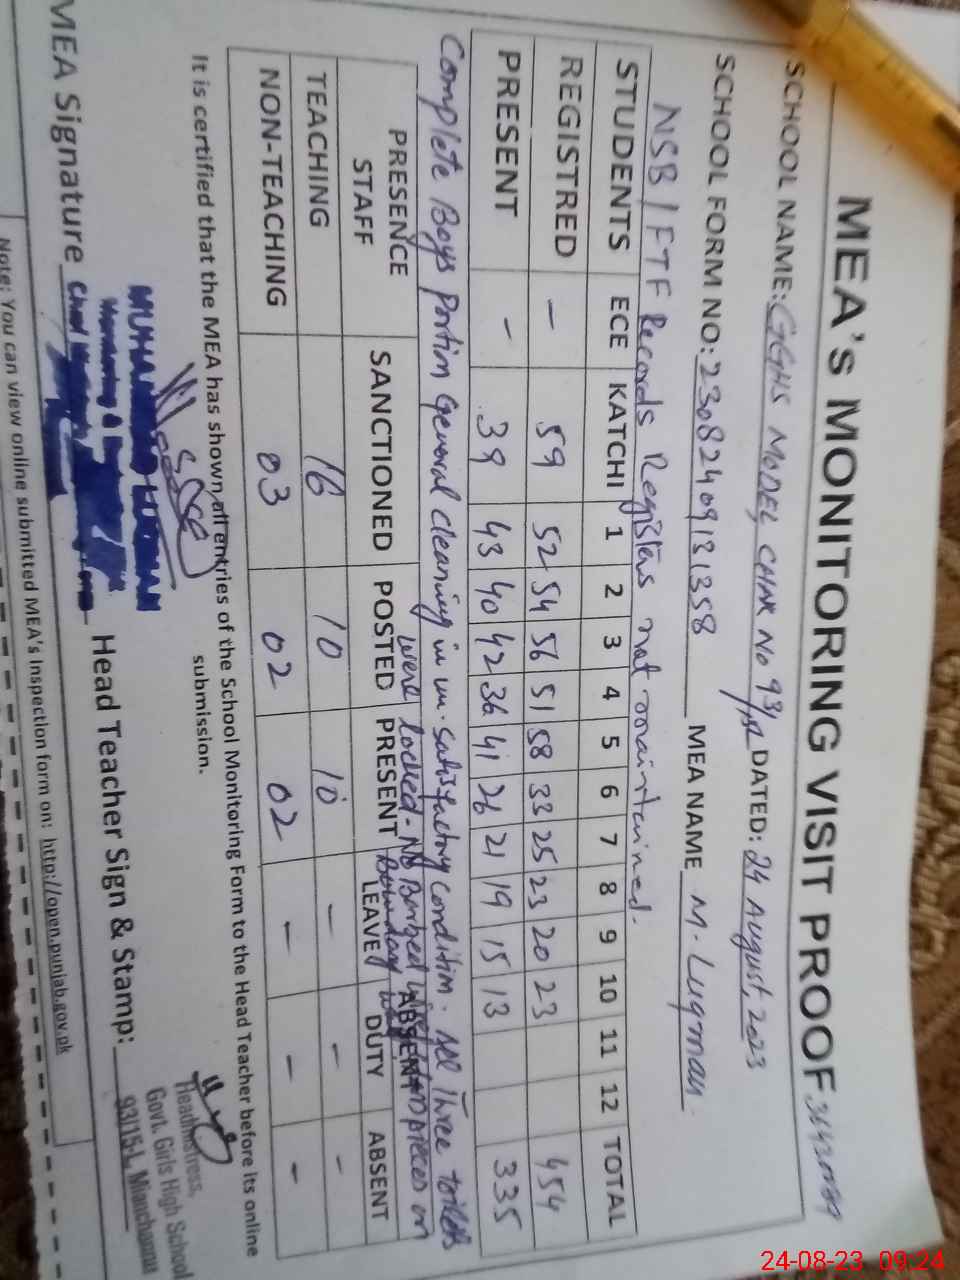 MEA's MONITORING VISIT PROOF
SCHOOL NAME: GGHS MODEL, CHAK No 93/15L DATED: 24 August, 2023
SCHOOL FORM NO: 23082409131358 MEA NAME M. Luqman.
NSB / FTF Records Registers not maintained.
STUDENTS ECE KATCHI 1 2 3 4 5 6 7 8 9 10 11 12 TOTAL
REGISTRED – 59 52 54 56 51 58 33 25 23 20 23 454
PRESENT – 39 43 40 42 36 41 26 21 19 15 13 335
Complete Boys Portion General cleaning in un-satisfactory condition. All Three toilets
were locked - No Barbed pieces on
Boundary
PRESENCE STAFF SANCTIONED POSTED PRESENT LEAVE DUTY ABSENT
ABSENT
TEACHING 16 10 10 – – –
NON-TEACHING 03 02 02 – – –
It is certified that the MEA has shown all entries of the School Monitoring Form to the Head Teacher before its online
submission.
MUHAMMAD LUQMAN
Monitoring &
MEA Signature Head Teacher Sign & Stamp:
Headmistress,
Govt. Girls High School
93/15-L Mianchannu
Note: You can view online submitted MEA's Inspection form on: http://open.punjab.gov.pk
24-08-23 09:24